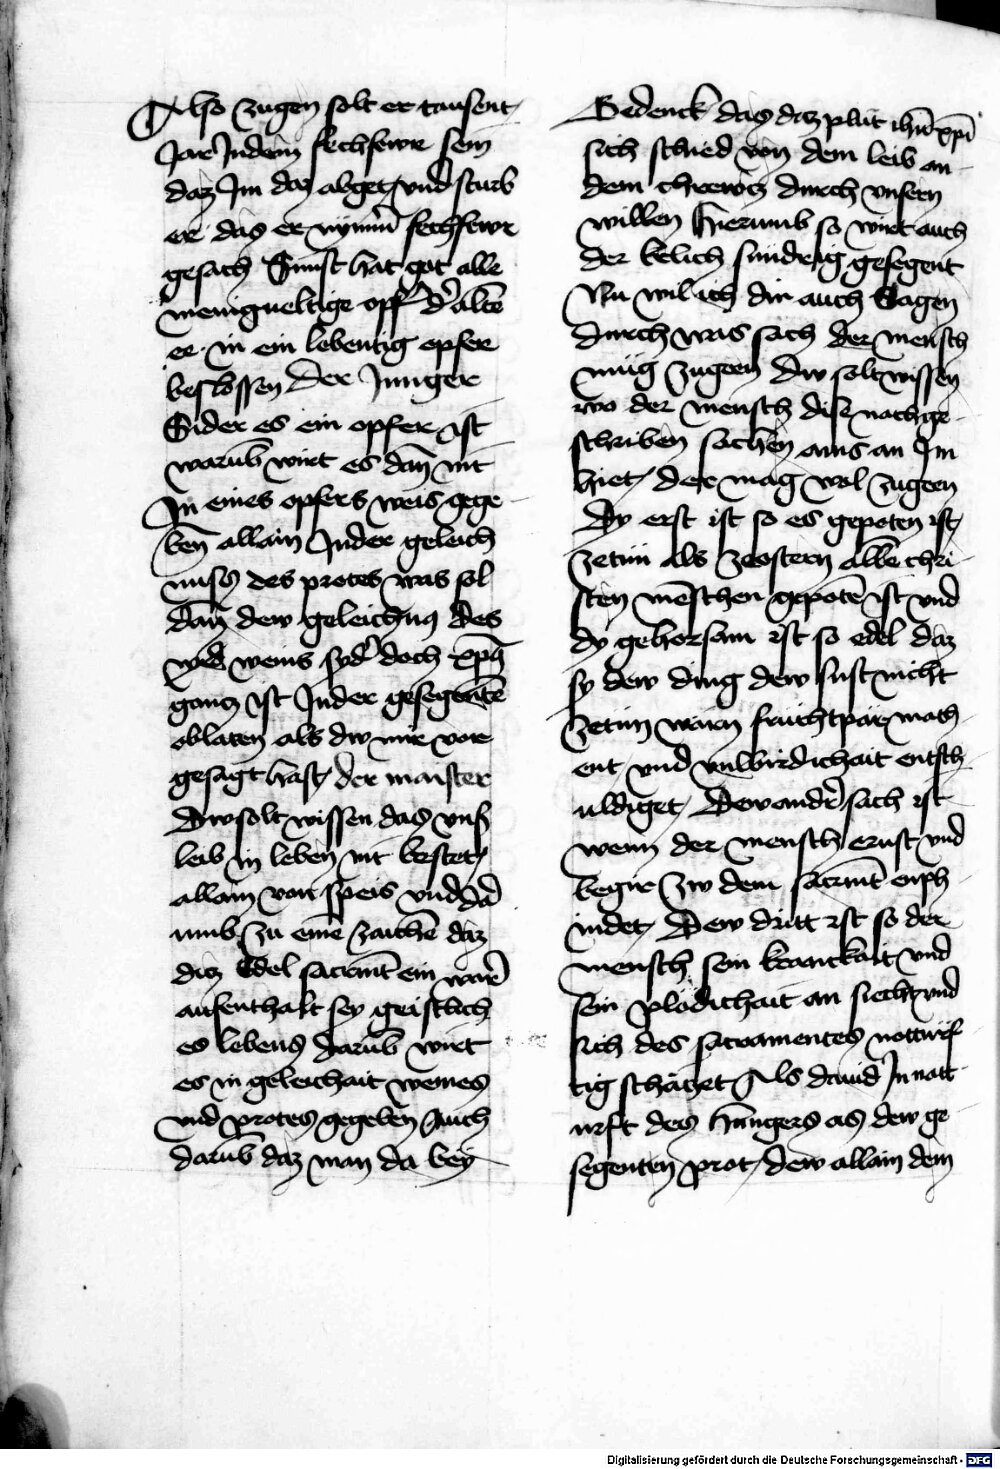 Also zugen solt er tausent
Jar Indem fechfewr sein
daz Im daz abget und sturb
er das er nymm̄ fechfewr
gesach Sunst hat got alle
menigueltige opff̄ d' alten
er in ein lebentig opfer
beslossen Der Junger
Sider es ein opfer ist
warūb wirt es dan̄ nit
In eines opfers weis gege
ben̄ allain Inder geleich
nuss des protes was sol
dan̄ dew geleichnuss des
weins syd' doch xp̄s
gancz ist Inder gesegentē
oblaten als dw mir vor
gesagt hast der maister
Dw solt wissen das uns'
leib in leben nit bestet
allain von speis und dar
umb zu einē zaichē daz
daz Edel sacrm̄t ein warer
aufenthalt sey geistlich
es lebens darūb wirt
es in geleichait weines
und protes gegeben Auch
darūb daz man da bey
Bedenck das daz plut ihū xp̄i
sich schied von dem leib an
dem chrewcz durch unsern
willen Hierumb so wirt auch
der kelich sundrig gesegent
Nu wil ich dir auch Sagen
durch was sach der mensch
müg zugeen Dw solt wissen
wo der mensch diser nachge
schriben sachen ains an Im
hiet der mag wol zugeen
Dy erst ist so es gepoten ist
zetun als zeostern allen chri
sten mēschen gepotē ist und
dy gehorsam ist so edel daz
sy dew ding dew sust nicht
zetun wārn fruchtpār mach
ent und unwirdichait entsch
uldiget Dew ander sach ist
wenn der mensch ernst und
begir zw dem sacrm̄t enph
indet Dew dritt ist so der
mensch sein kranckait und
sein plödichait an siecht und
sich des sacramentes notturf
tig schäczet Als dauid In nott
urft des hungers as dew ge
segenten prot dew allain dem
Digitalisierung gefördert durch die Deutsche Forschungsgemeinschaft - DFG